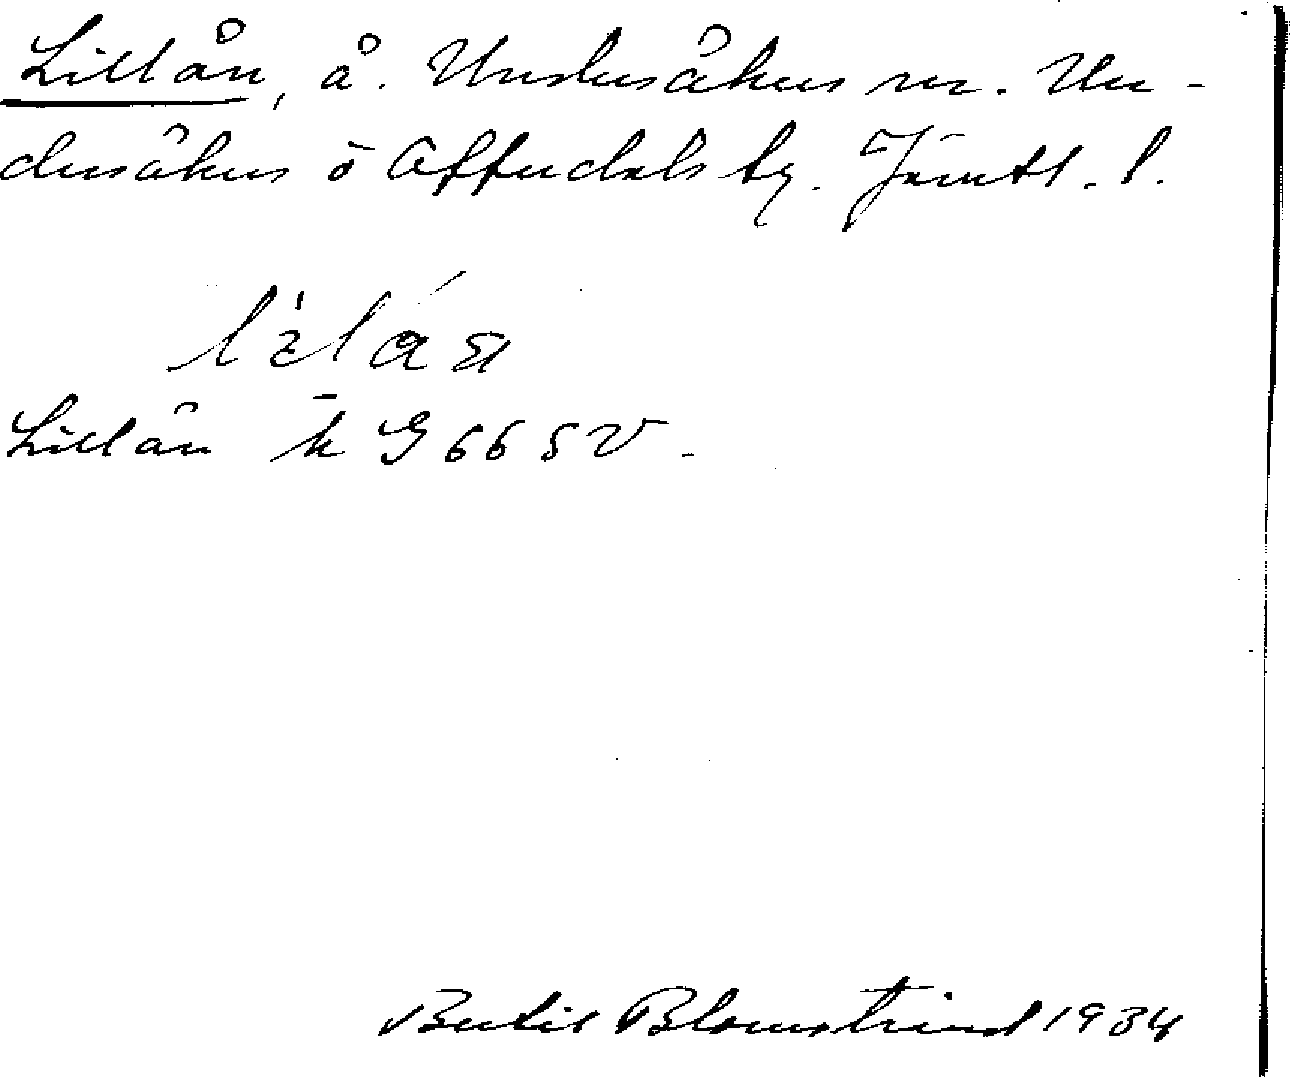 Lillån, å. Undersåkers sn. Un-
dersåkers o Offerdals tg. Jämtl. l.
Lillån k G 66 5 V.
Bertil Blomstrand 1934